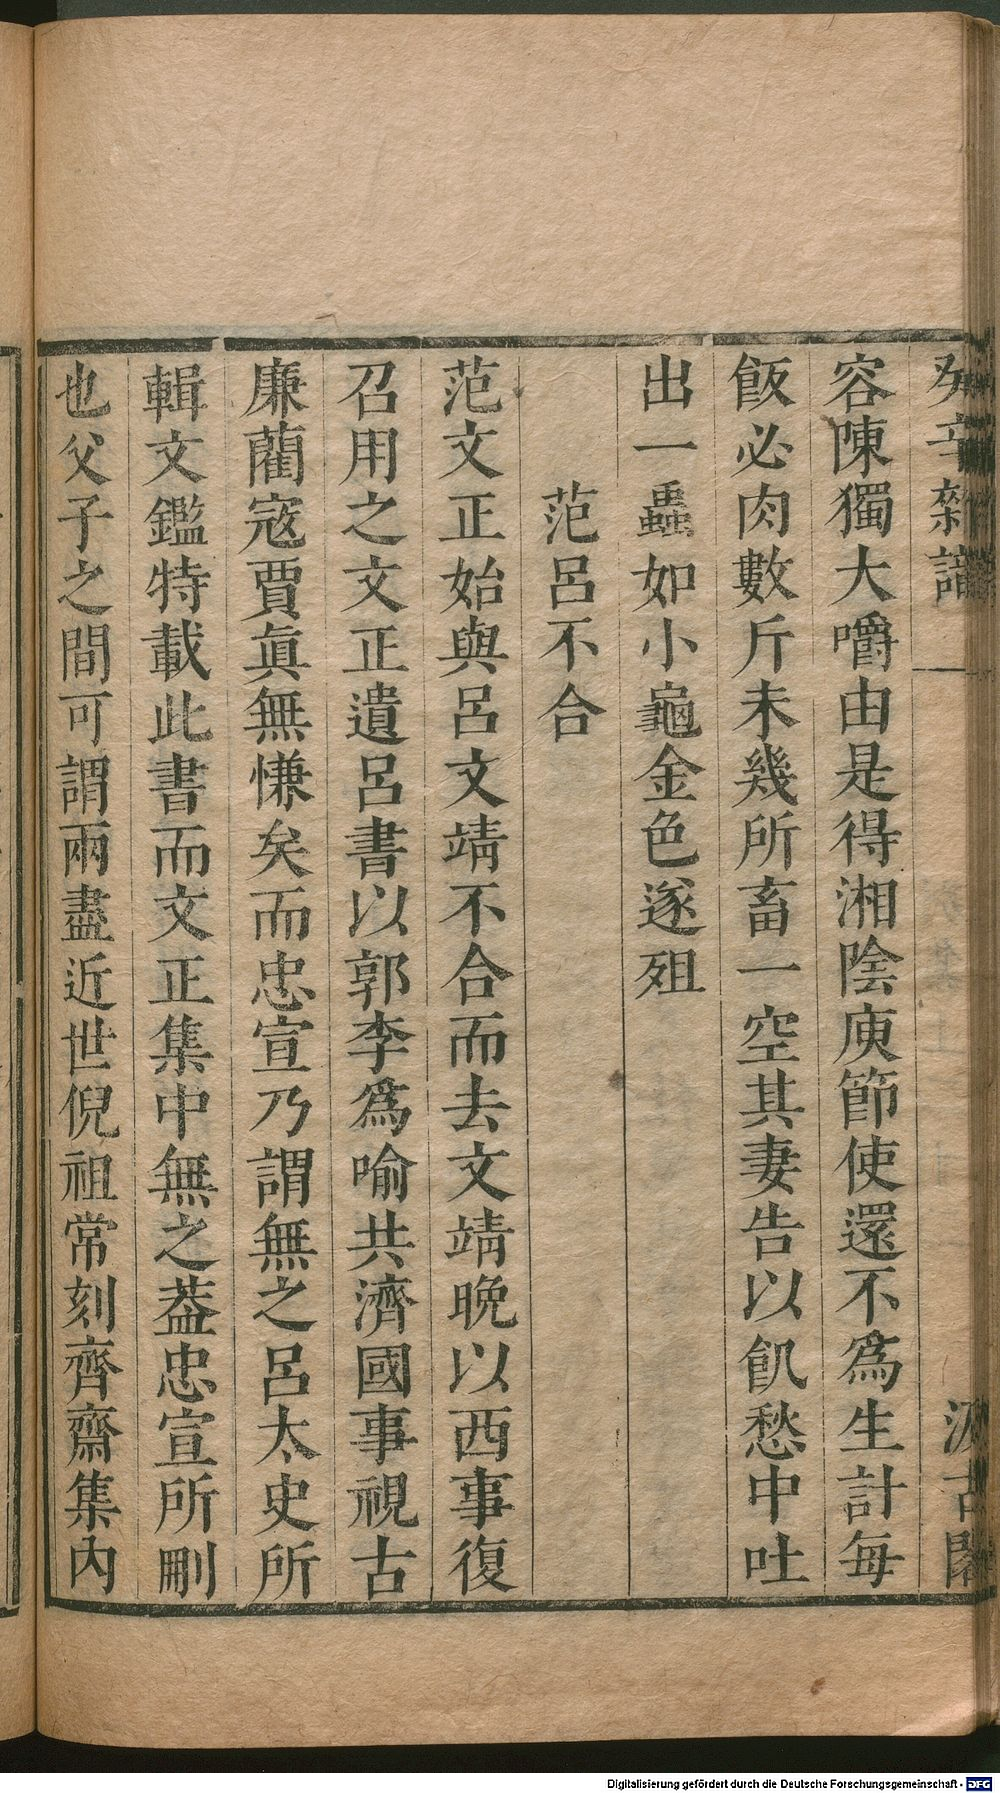 癸辛雜識
汲古閣
容陳獨大嚼由是得湘陰庾節使還不爲生計每
飯必肉數斤未幾所畜一空其妻告以飢愁中吐
出一蟲如小龜金色遂殂
范呂不合
范文正始與呂文靖不合而去文靖晩以西事復
召用之文正遺呂書以郭李爲喻共濟國事視古
廉藺寇賈眞無慊矣而忠宣乃謂無之呂太史所
輯文鑑特載此書而文正集中無之葢忠宣所刪
也父子之間可謂兩盡近世倪祖常刻齊齋集內
Digitalisierung gefördert durch die Deutsche Forschungsgemeinschaft - DFG